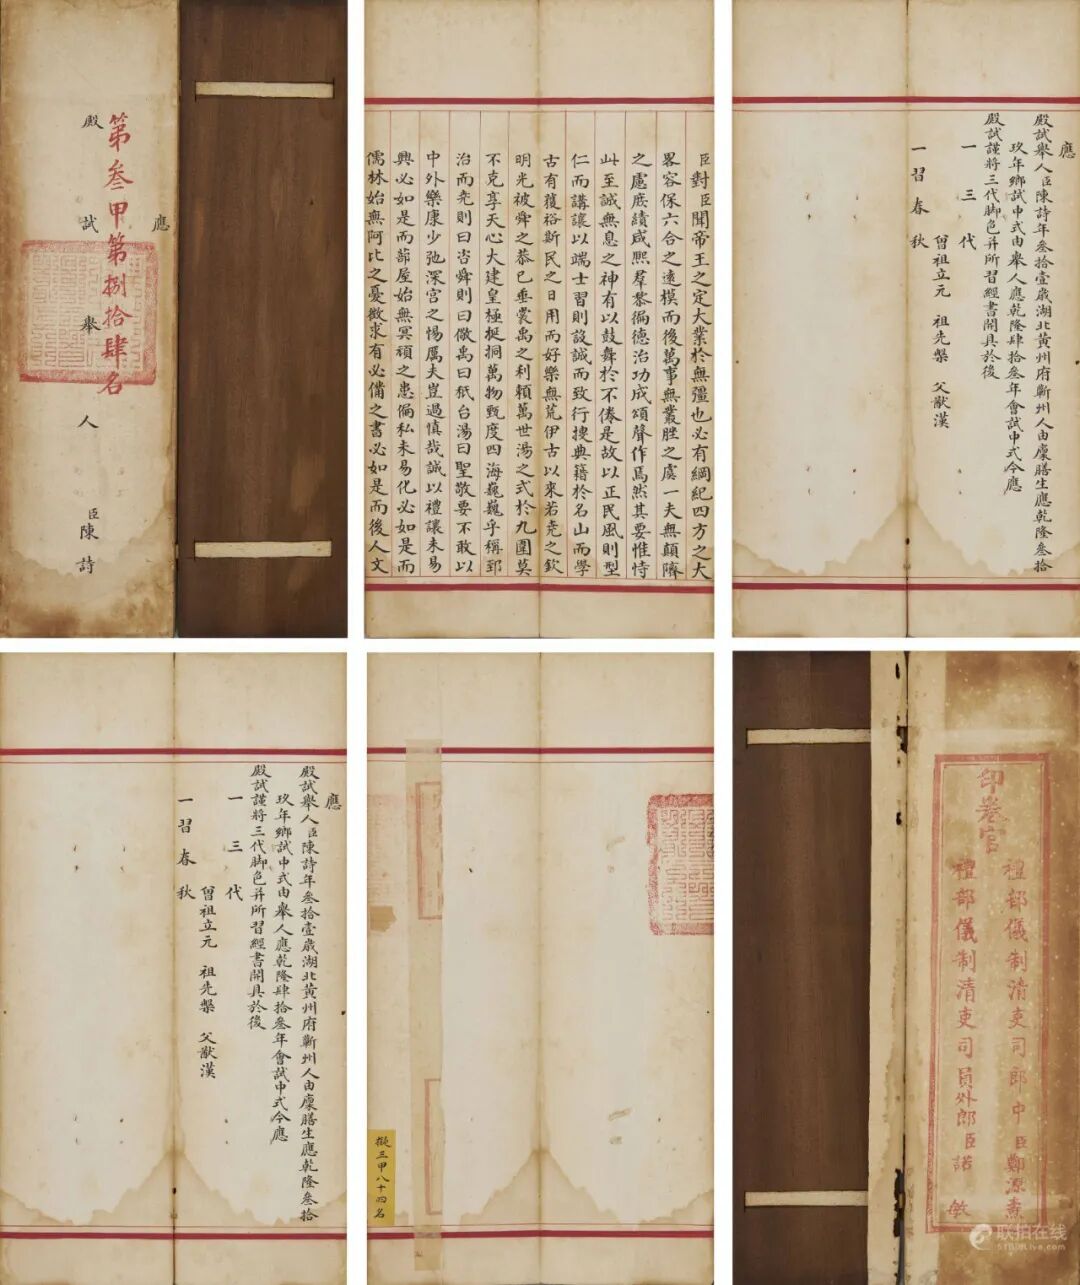 第叁甲第捌拾肆名
應
殿試舉人臣陳詩
臣對臣聞帝王之定大業於無疆也必有綱紀四方之大
畧容保六合之遠模而後萬事無叢脞之虞一夫無顛隮
之慮庶績咸熙羣黎徧德治功成頌聲作焉然其要惟恃
此至誠無息之神有以鼓舞於不倦是故以正民風則型
仁而講讓以端士習則設誠而致行搜典籍於名山而學
古有穫裕斯民之日用而好樂無荒伊古以來若堯之欽
明光被舜之恭己垂裳禹之利賴萬世湯之式於九圍莫
不克享天心大建皇極挺洞萬物甄度四海巍巍乎稱郅
治而堯則曰咨舜則曰儆禹曰祇台湯曰聖敬要不敢以
中外樂康少弛深宮之惕厲夫豈過慎哉誠以禮讓未易
興必如是而蔀屋始無冥頑之患偏私未易化必如是而
儒林始無阿比之憂徵求有必備之書必如是而後人文
應
殿試舉人臣陳詩年叁拾壹歲湖北黃州府蘄州人由廩膳生應乾隆叁拾
玖年鄉試中式由舉人應乾隆肆拾叁年會試中式今應
殿試謹將三代脚色并所習經書開具於後
一三代
曾祖立元 祖先槃 父猷漢
一習春秋
應
殿試舉人臣陳詩年叁拾壹歲湖北黃州府蘄州人由廩膳生應乾隆叁拾
玖年鄉試中式由舉人應乾隆肆拾叁年會試中式今應
殿試謹將三代脚色并所習經書開具於後
一三代
曾祖立元 祖先槃 父猷漢
一習春秋
擬三甲八十四名
印卷官
禮部儀制清吏司郎中臣鄭源燾
禮部儀制清吏司員外郎臣諾敏
联拍在线